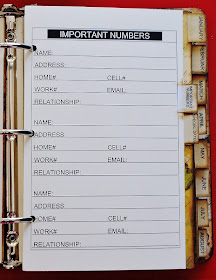 IMPORTANT NUMBERS
NAME:
ADDRESS:
HOME# CELL#
WORK# EMAIL:
RELATIONSHIP:
NAME:
ADDRESS:
HOME# CELL#
WORK# EMAIL:
RELATIONSHIP:
NAME:
ADDRESS:
HOME# CELL#
WORK# EMAIL:
RELATIONSHIP:
JANUARY
FEBRUARY
MARCH
APRIL
MAY
JUNE
JULY
AUGUST